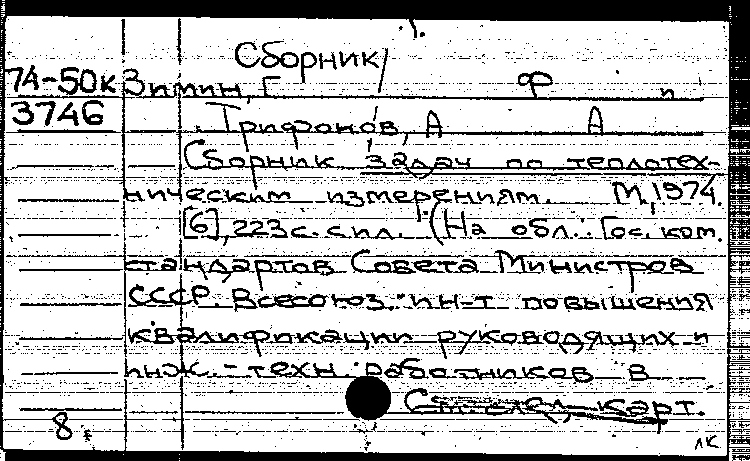 Сборник
74-50к Зимин, Г Ф и
3746 Трифонов, А А
Сборник задач по теплотех-
ническим измерениям. М, 1974.
[6], 223 с. с ил. (На обл.: Гос. ком.
стандартов Совета Министров
СССР. Всесоюз. ин-т повышения
квалификации руководящих и
инж.-техн. работников в
См. след. карт.
8
лк